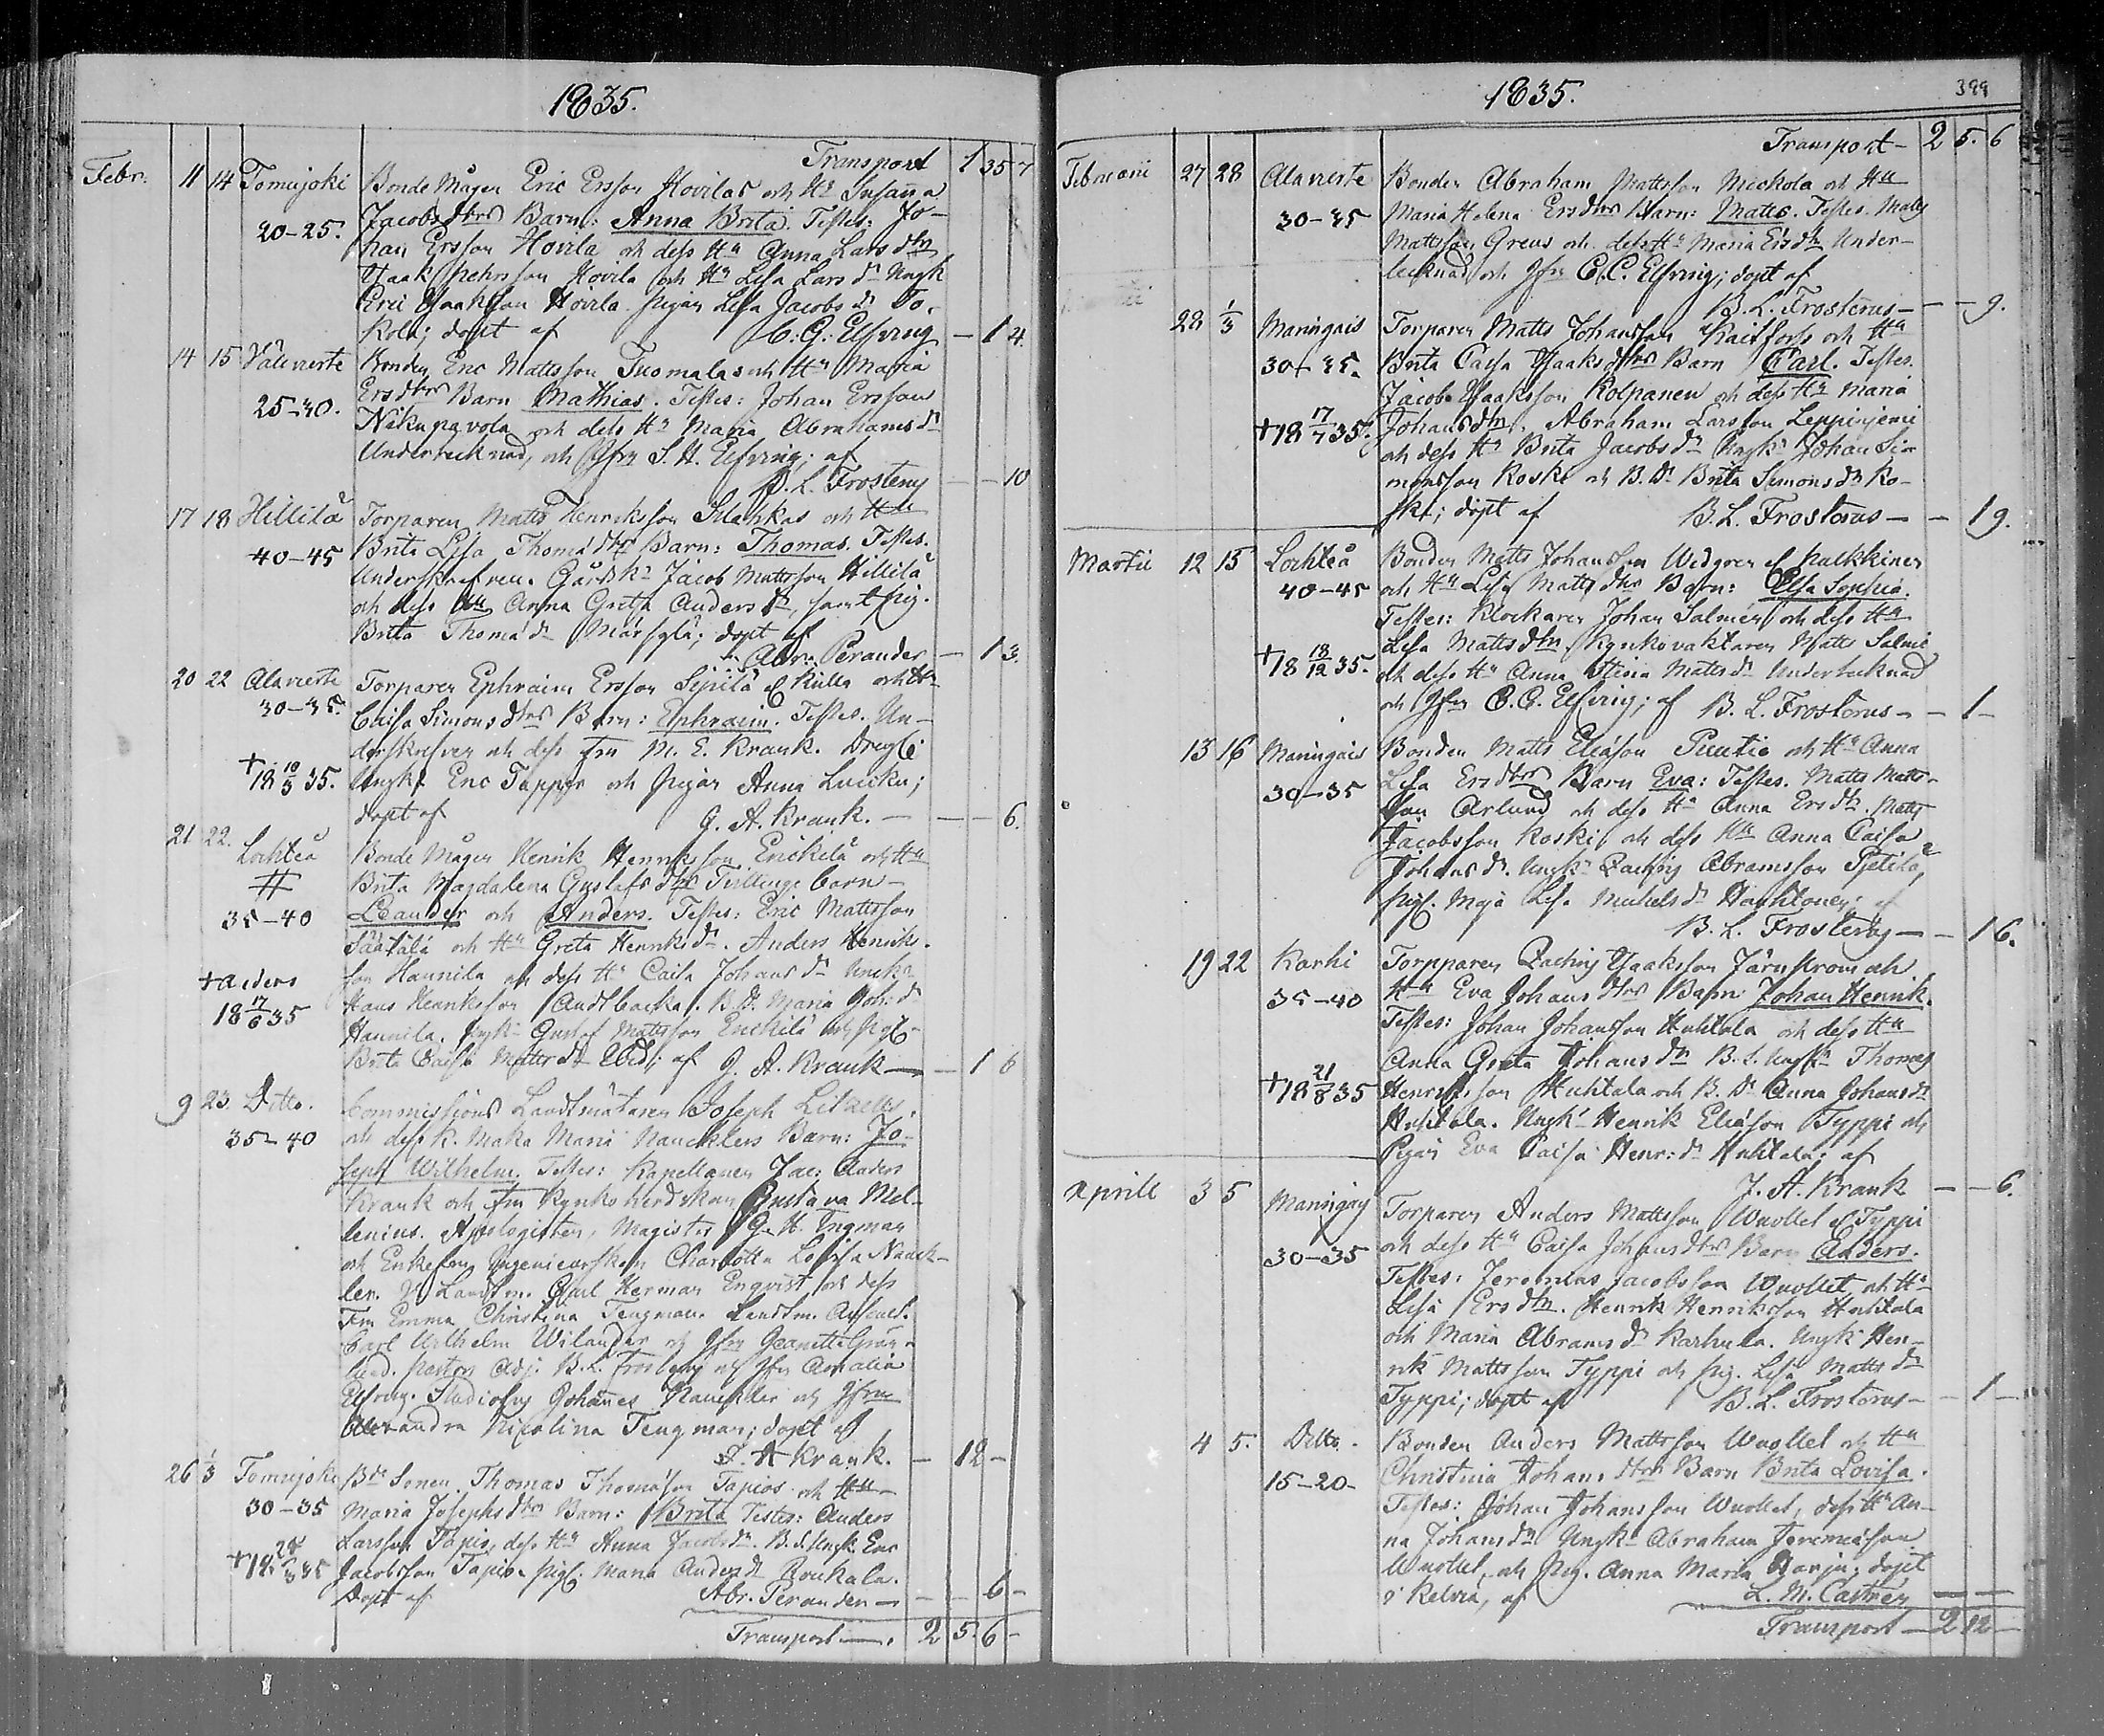 1835.
Transport 1 35 7
Febr. 11 14 Tomujoki Bonde Mågen Eric Ersson Hovilas och Hu Susanna
20-25. Jacobsdtrs Barn: Anna Brita. Testes: Jo-
han Ersson Hovila och dess Hu Anna Larsdtr
Isaak Pehrsson Hovila och Hu Lisa Lars dr Ungk
Eric Isaaksson Hovila pigan Lisa Jacobs dr To-
kola; döpt af C. G. Elfving — 1 4
14 15 Wälivierte Bonden Eric Mattsson Tuomalas och Hu Maria
25-30. Ersdtrs Barn Mathias. Testes: Johan Ersson
Niku pavola och dess Hu Maria Abrahams dr
Undertecknad, och Jfru S. H. Elfving; af
B. L. Frosterus — — 10
17 18 Hillilä Torparen Matts Henriksson och Hu
40-45 Brita Lisa Thomædtrs Barn: Thomas. Testes.
Underskrefven. Gårdsk. Jacob Mattsson Hillilä
och dess Hu Anna Greta Anders dr, samt pig.
Brita Thomæ dr Märsylä; döpt af
Abr. Perander — 1 3.
20 22 Alavierte Torparen Ephraim Ersson Sipilä l. Kulla och Hu
30-35. Caisa Simonsdtrs Barn: Ephraim. Testes. Un-
derskrefven och dess fru M. E. Krank. Dreng
+18 10/3 35. ungk. Eric Tapper och pigan Anna Luicku;
döpt af J. A. Krank. — — — 6.
21 22. Lochteå Bonde Mågen Henrik Henriksson Erickilä och Hu
# Brita Magdalena Gustafs dtrs Tvillinge barn
35-40 Leander och Anders. Testes: Eric Mattsson
Säätälä och Hu Greta Henriks dr. Anders Henriks-
+Anders son Hannila och dess Hu Caisa Johans dr Ungk.
18 17/6 35 Hans Henriksson Andtbacka. B. D. Maria Joh: dr
Hannila. Ungk. Gustaf Mattsson Erickilä och pig.
Brita Caisa Matts dr ibid; af J. A. Krank — — 1 6
9 23 Ditto. Commissions Landtmätaren Joseph
35-40 och dess k. Maka Maria Naucklers Barn: Jo-
seph Wilhelm. Testes: Kapellanen Jac: Anders
Krank och fru Kyrkoherdskan Gustava Mel-
lenius. Apologisten, Magister G. H. Ingman
och Enkefru Ingenieurskan Charlotta Lovisa Nauck-
ler. V. Landtm. Carl Herman Enqvist och dess
Fru Emma Christina Tengman. Landtm. Auscult.
Carl Wilhelm Wilander och Jfru Jeanette Grön-
lund. Pastors Adj. B. L. Frosterus och Jfru Amalia
Elfving. Studiosus Johannes Nauckler och Jfru
Alexandra Nicolina Tengman; döpt af
J. A. Krank. — 12 —
26 1/3 Tomujoki Bde Sonen Thomas Thomasson Tapios och Hu
30-35 Maria Josephsdtrs Barn: Brita Testes: Anders
Larsson Tapio, dess Hu Anna Jacobs dr. B. S. Ungk. Eric
+18 28/3 35 Jacobsson Tapio. pig. Maria Anders dr Roukala.
Döpt af Abr. Perander — — — 6 —
Transport —. 2 5. 6 —
1835. 399
Transport — 2 5. 6
Februarii 27 28 Alavierte Bonden Abraham Mattsson Nickola och Hu
30-35 Maria Helena Ersdtrs Barn: Matts. Testes. Matts
Mattsson Greus och dess Hu Maria Ersdr Under-
tecknad och Jfru C. C. Elfving; döpt af
B. L. Frosterus — — — 9.
28 1/3 Maningais Torparen Matts Johansson Kaitfors och Hu
30-35. Brita Caisa Isaaksdtrs Barn Carl. Testes.
Jacob Isaaksson Kolpanen och dess Hu Maria
+18 17/7 35. Johansdtr. Abraham Larsson Leppinjemi
och dess Hu Brita Jacobs dr Ungk. Johan Si-
monsson Koski och B. Dr Brita Simons dr Ko-
ski; döpt af B. L. Frosterus — — 1 9.
Martii 12 15 Lochteå Bonden Matts Johansson Wedgren l. Palkkinen
40-45 och Hu Lisa Matts dtrs Barn: Elsa Sophia.
Testes: Klockaren Johan Salmén och dess Hu
Lisa Mattsdtr Kyrkovaktaren Matts Salmé
+18 18/12 35. och dess Hu Anna Stina Matts dr Undertecknad
och Jfru C. G. Elfving; af B. L. Frosterus — — 1 —
13 16 Maningais Bonden Matts Eliäson Puutio och Hu Anna
30-35 Lisa Ersdtrs Barn Eva: Testes. Matts Matts-
son Arlund och dess Hu Anna Ers dr. Matts
Jacobsson Koski, och dess Hu Anna Caisa
Johans dr. Ungk. Zachris Abramsson Pietilä,
pig. Maja Lisa Michels dr Hauhtonen; af
B. L. Frosterus — — 1 6.
19 22 Karhi Torpparen Zachris Isaaksson Järnstrom och
35-40 Hu Eva Johans dtrs Barn: Johan Henrik.
Testes: Johan Johansson Huhtala och dess Hu
Anna Greta Johans dr B. S. Ungk. Thomas
+18 21/8 35 Henriksson Huhtala och B. Dr Anna Johans dr
Huhtala. Ungk. Henrik Eliäson Typpi och
Pigan Eva Caisa Henr: dr Huhtala; af
J. A. Krank — — 6.
Aprill 3 5 Maningais Torparen Anders Mattsson Wuollet l. Typpi
30-35 och dess Hu Caisa Johansdtrs Barn Anders.
Testes: Jeremias Jacobsson Wuollet, och Hu
Lisa Ersdtr. Henrik Henriksson Huhtala
och Maria Abrams dr Karhula. Ungk. Hen-
rik Mattsson Typpi och pig. Lisa Matts dr
Typpi; döpt af B. L. Frosterus — — 1 —
4 5. Ditto. Bonden Anders Mattsson Wuollet och Hu
15-20- Christina Johans dtrs Barn Brita Lovisa.
Testes: Johan Johansson Wuollet, dess Hu An-
na Johans dr Ungk. Abraham Jeremiasson
Wuollet, och Pig. Anna Maria Harju; döpt
i Kelviå, af L. M. Castrén — —
Transport — 2 12 —